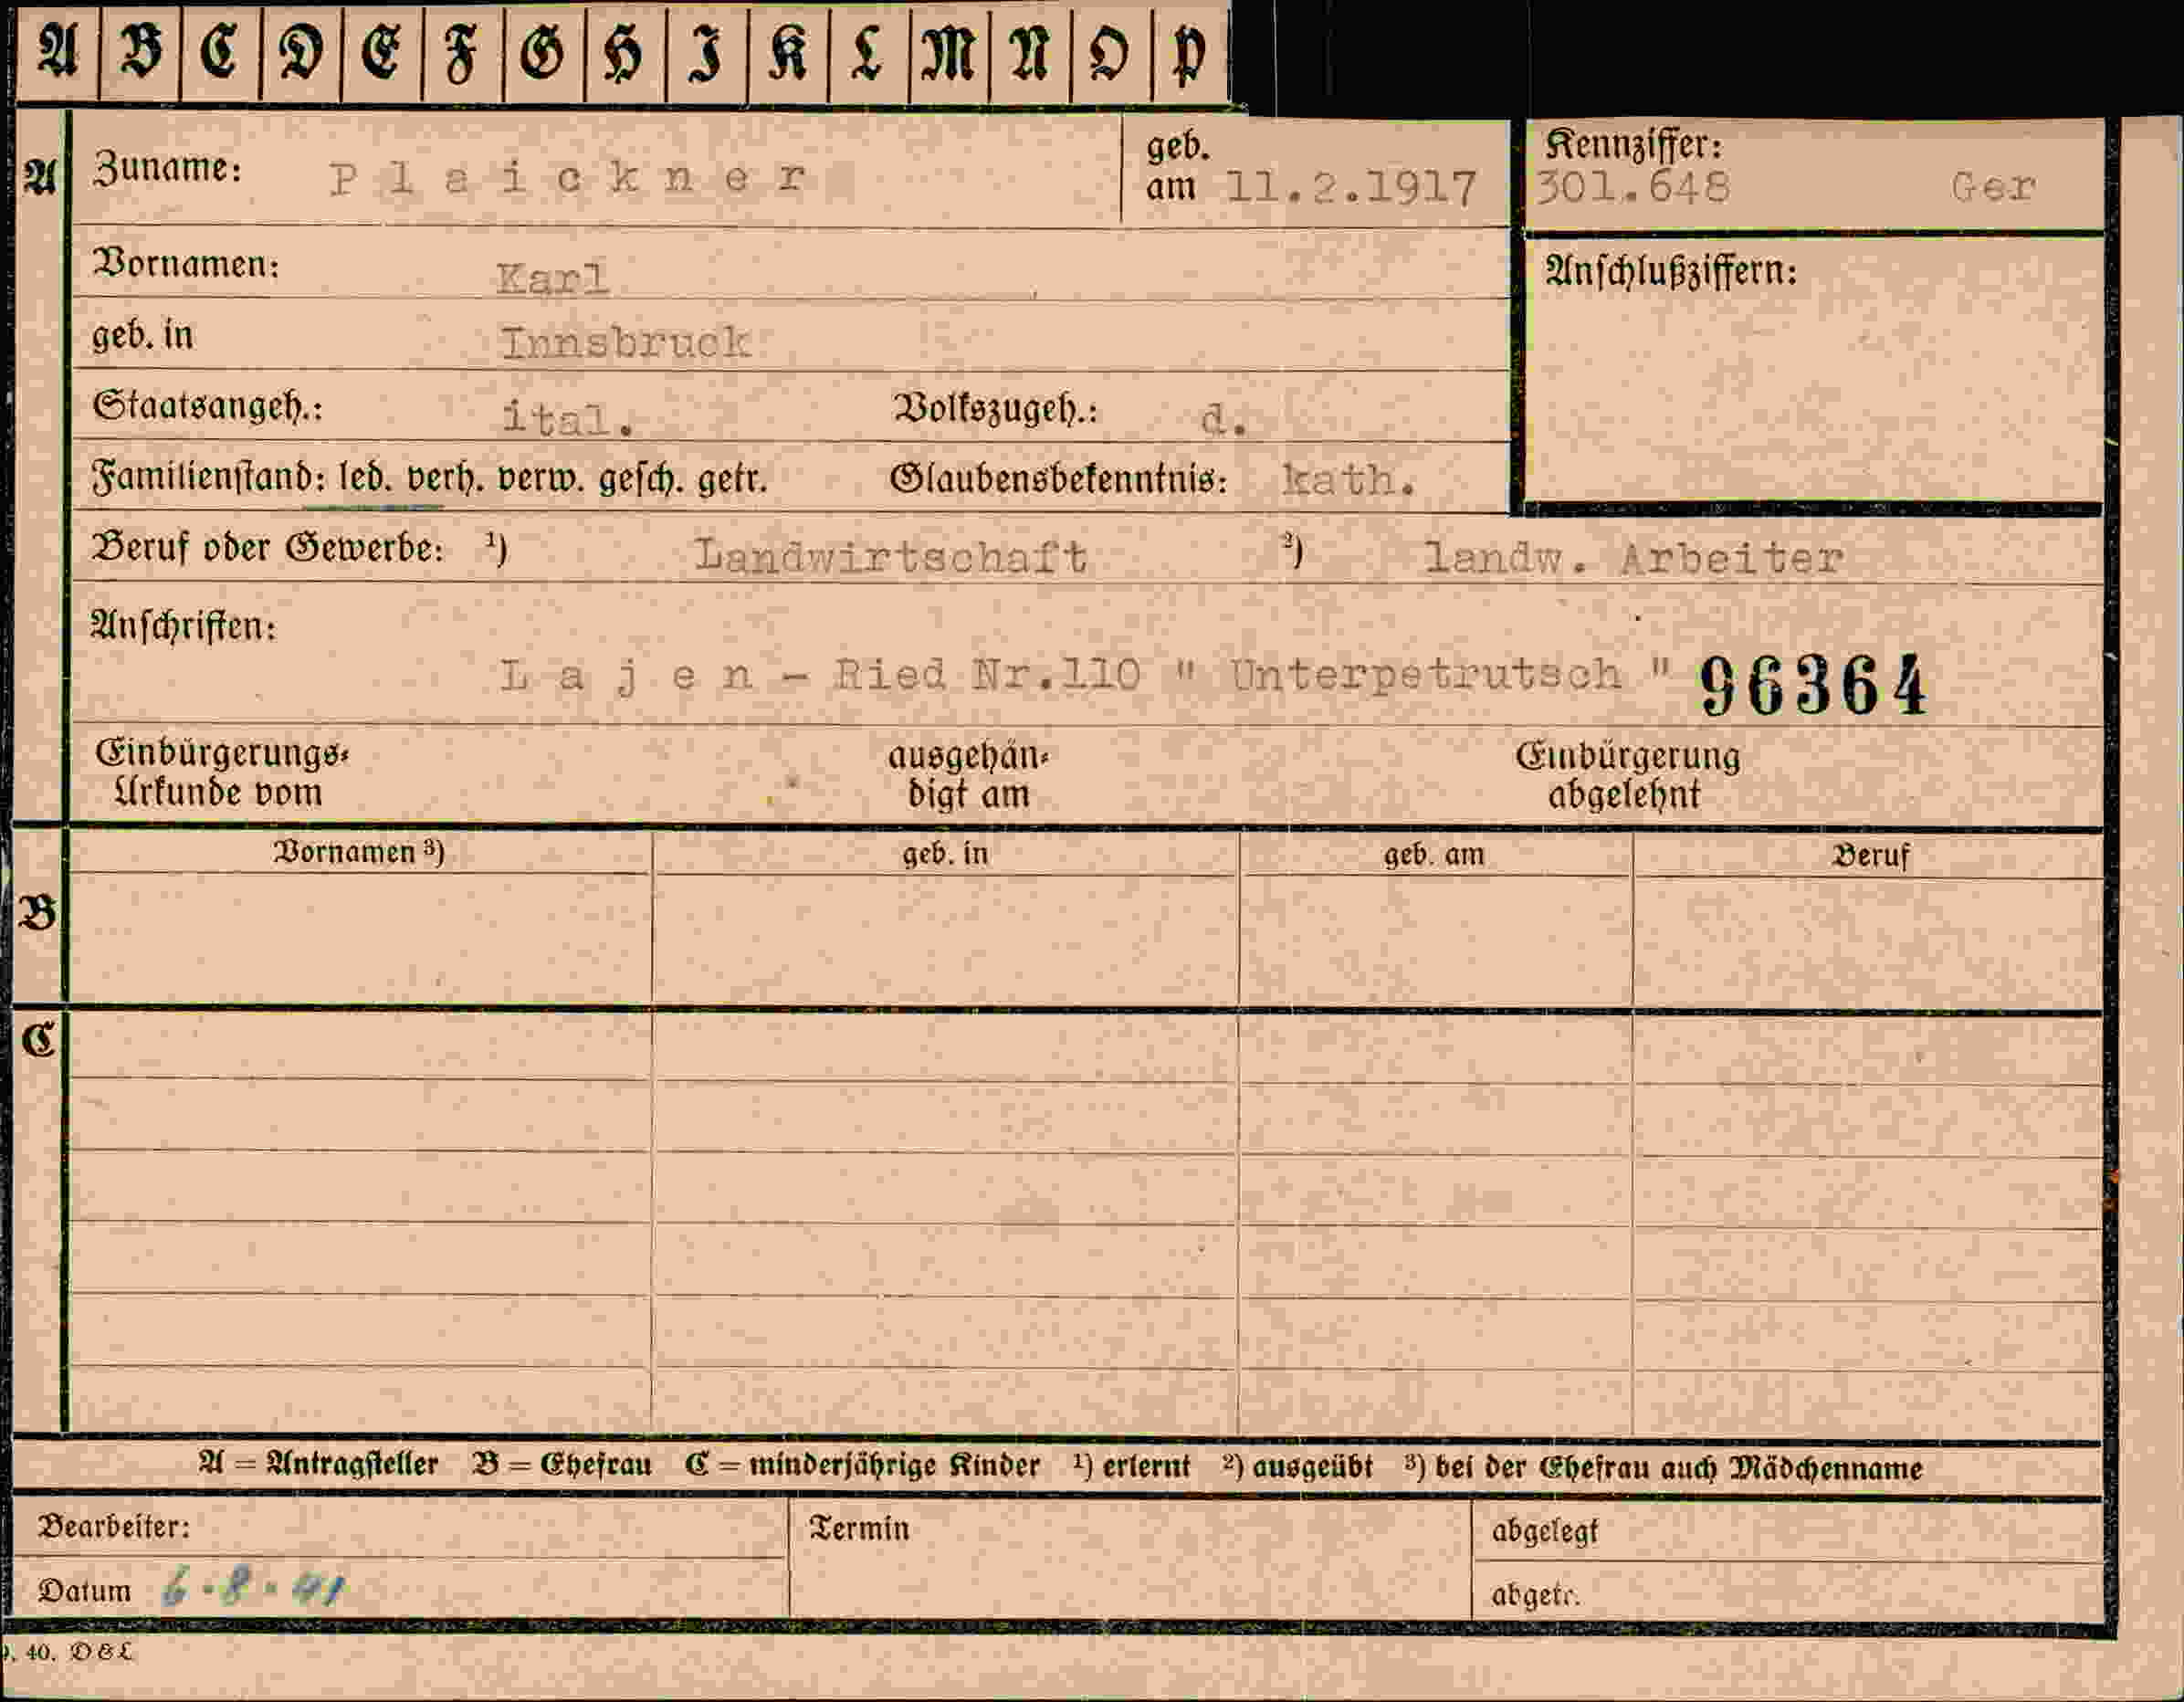 A B C D E F G H I K L M N O P
A Zuname: Plaickner geb. am 11.2.1917 Kennziffer: 301.648 Ger
Vornamen: Karl Anschlußziffern:
geb. in Innsbruck
Staatsangeh.: ital. Volkszugeh.: d.
Familienstand: led. verh. verw. gesch. getr. Glaubensbekenntnis: kath.
Beruf oder Gewerbe: ¹) Landwirtschaft ²) landw. Arbeiter
Anschriften:
Lajen - Ried Nr.110 " Unterpetrutsch " 96364
Einbürgerungs- ausgehän- Einbürgerung
Urkunde vom digt am abgelehnt
Vornamen ³) geb. in geb. am Beruf
B
C
A = Antragsteller B = Ehefrau C = minderjährige Kinder ¹) erlernt ²) ausgeübt ³) bei der Ehefrau auch Mädchenname
Bearbeiter: Termin abgelegt
Datum 6-8-41 abgetr.
40. D&L